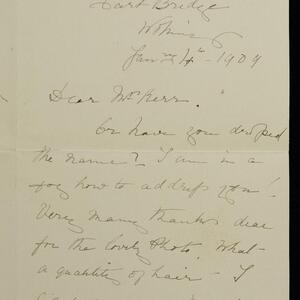 Hart Bridge
Woking
Jan 4th 1909
Dear Mrs Kerr.
Or have you dropped
the name? I am in a
fog how to address you!
Very many thanks dear
for the lovely Photo. What
a quantity of hair - I